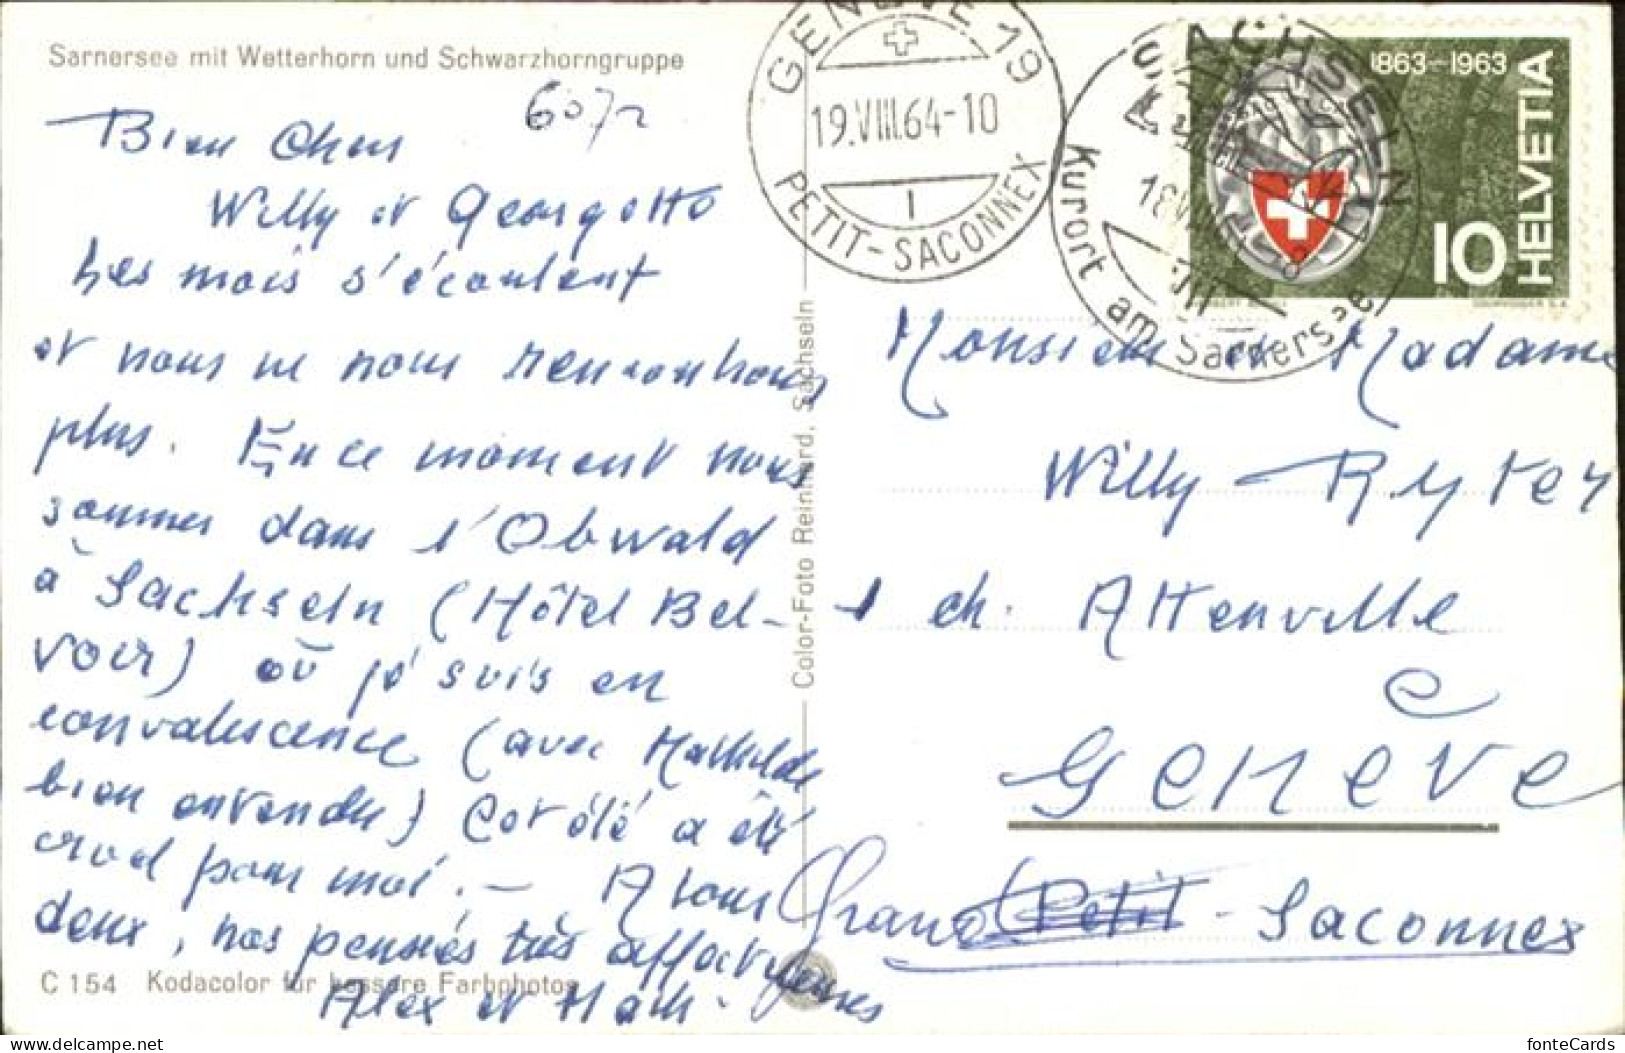 Sarnersee mit Wetterhorn und Schwarzhorngruppe
6072
Bien Chers
Willy et Georgette
Les mois s'écoulent
et nous ne nous rencontrons
plus. En ce moment nous
sommes dans l'Obwald
à Sachseln (Hôtel Bel-
voir) où je suis en
convalescence (avec Mathilde
bien entendu) Cet été a été
cruel pour moi. - A tous
deux, nos pensées très affectueuses
Alex et Math.
C 154 Kodacolor für bessere Farbphotos
Color-Foto Reinhard, Sachseln
GENÈVE 19
19.VIII.64-10
1
PETIT-SACONNEX
SACHSELN
18.VIII
Kurort am Sarnersee
1863-1963
HELVETIA
10
COURVOISIER S.A.
Monsieur et Madame
Willy Ryter
1 ch. Attenville
e
Genève
Grand Petit - Saconnex
fonteCards